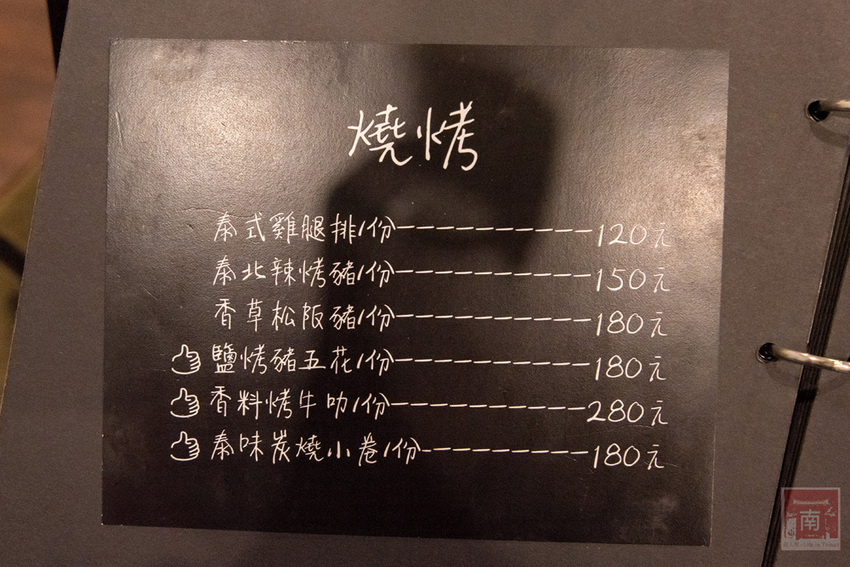 燒烤
泰式雞腿排/份----------120元
泰北辣烤豬/份----------150元
香草松阪豬/份----------180元
鹽烤豬五花/份----------180元
香料烤牛肋/份----------280元
泰味炭燒小卷/份---------180元
南